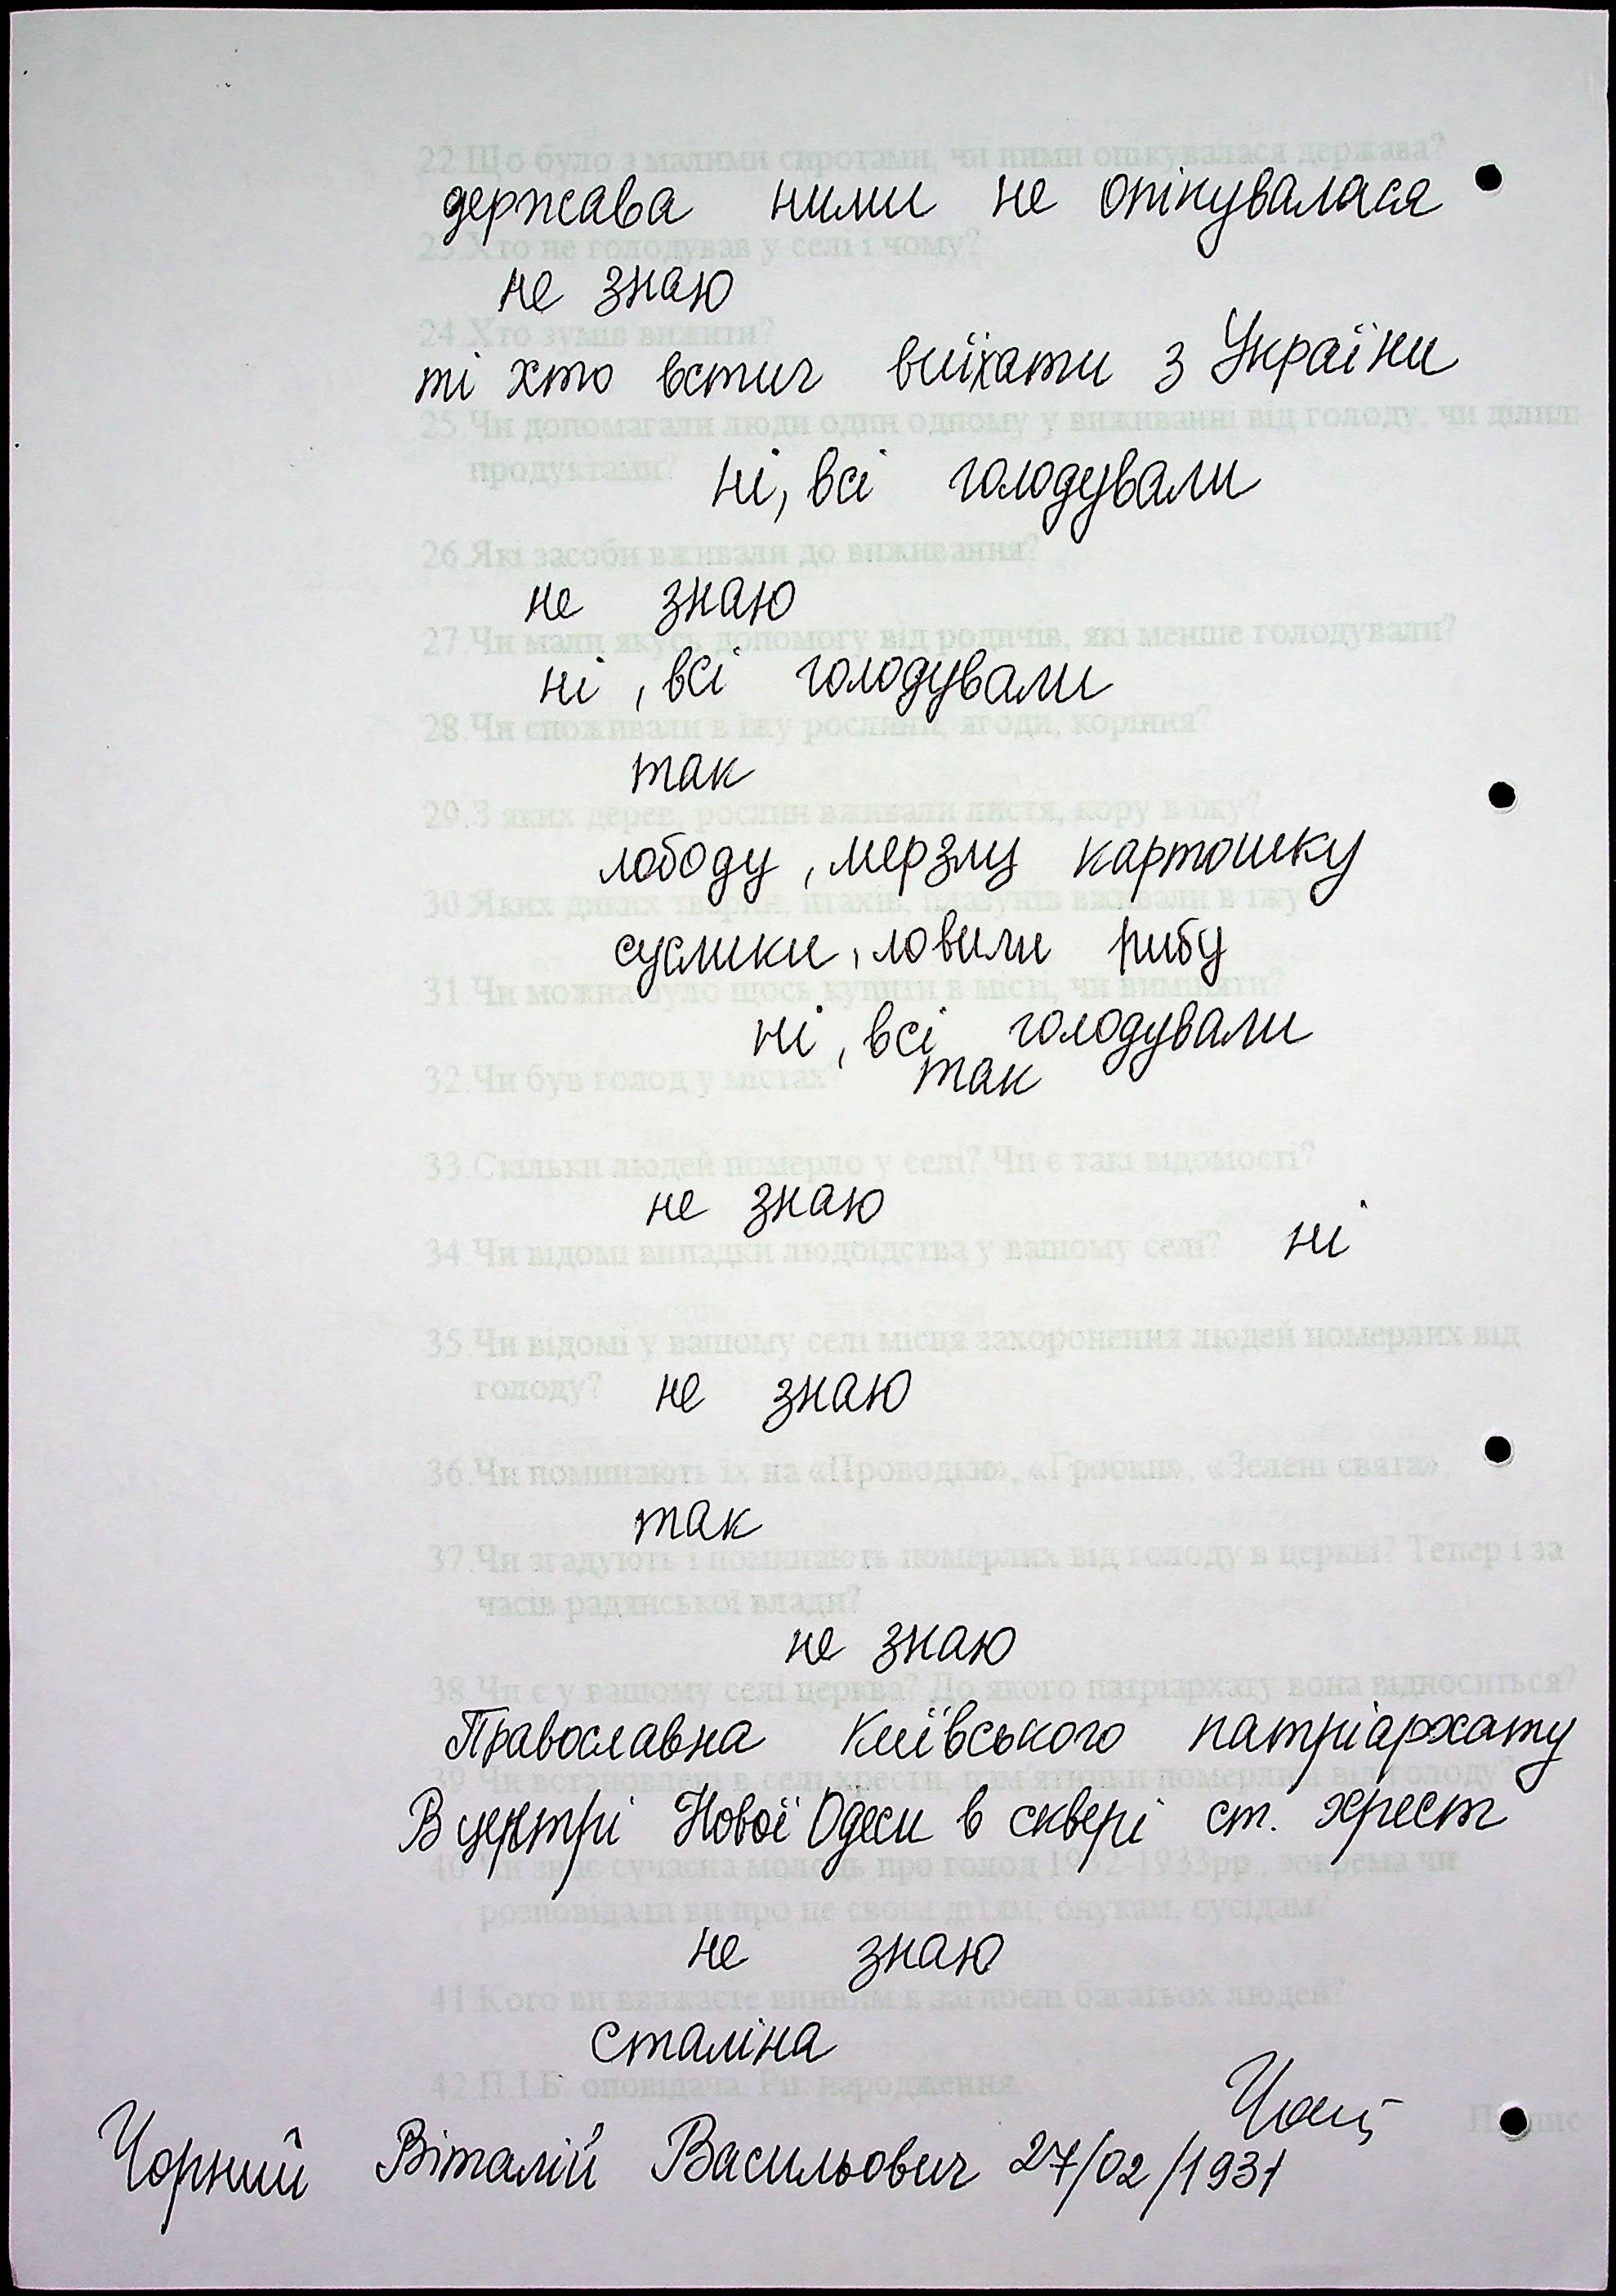 22.Що було з малими сиротами, чи ними опікувалася держава?
держава ними не опікувалася
23.Хто не голодував у селі і чому?
не знаю
24.Хто зумів вижити?
ті хто встиг виїхати з України
25.Чи допомагали люди один одному у виживанні від голоду, чи ділили
продуктами?
ні, всі голодували
26.Які засоби вживали до виживання?
не знаю
27.Чи мали якусь допомогу від родичів, які менше голодували?
ні, всі голодували
28.Чи споживали в їжу рослини, ягоди, коріння?
так
29.З яких дерев, рослин вживали листя, кору в їжу?
лободу, мерзлу картошку
30.Яких диких тварин, птахів, плазунів вживали в їжу
суслики, ловили рибу
31.Чи можна було щось купити в місті, чи виміняти?
ні, всі голодували
32.Чи був голод у містах?
так
33.Скільки людей померло у селі? Чи є такі відомості?
не знаю
34.Чи відомі випадки людоїдства у вашому селі? ні
35.Чи відомі у вашому селі місця захоронення людей померлих від
голоду?
не знаю
36.Чи поминають їх на «Проводжи», «Гробки», «Зелені свята».
так
37.Чи згадують і поминають померлих від голоду в церкві? Тепер і за
часів радянської влади?
не знаю
38.Чи є у вашому селі церква? До якого патріархату вона відноситься?
Православна Київського патріархату
39.Чи встановлені в селі хрести, пам'ятники померлим від голоду?
В центрі Нової Одеси в сквері ст. хрест
40.Чи знає сучасна молодь про голод 1932-1933рр., зокрема чи
розповідали ви про це своїм дітям, онукам, сусідам?
не знаю
41.Кого ви вважаєте винним в загибелі багатьох людей?
Сталіна
42.П.І.Б. оповідача. Рік народження.
Підпис
Чорний Віталій Васильович 27/02/1931